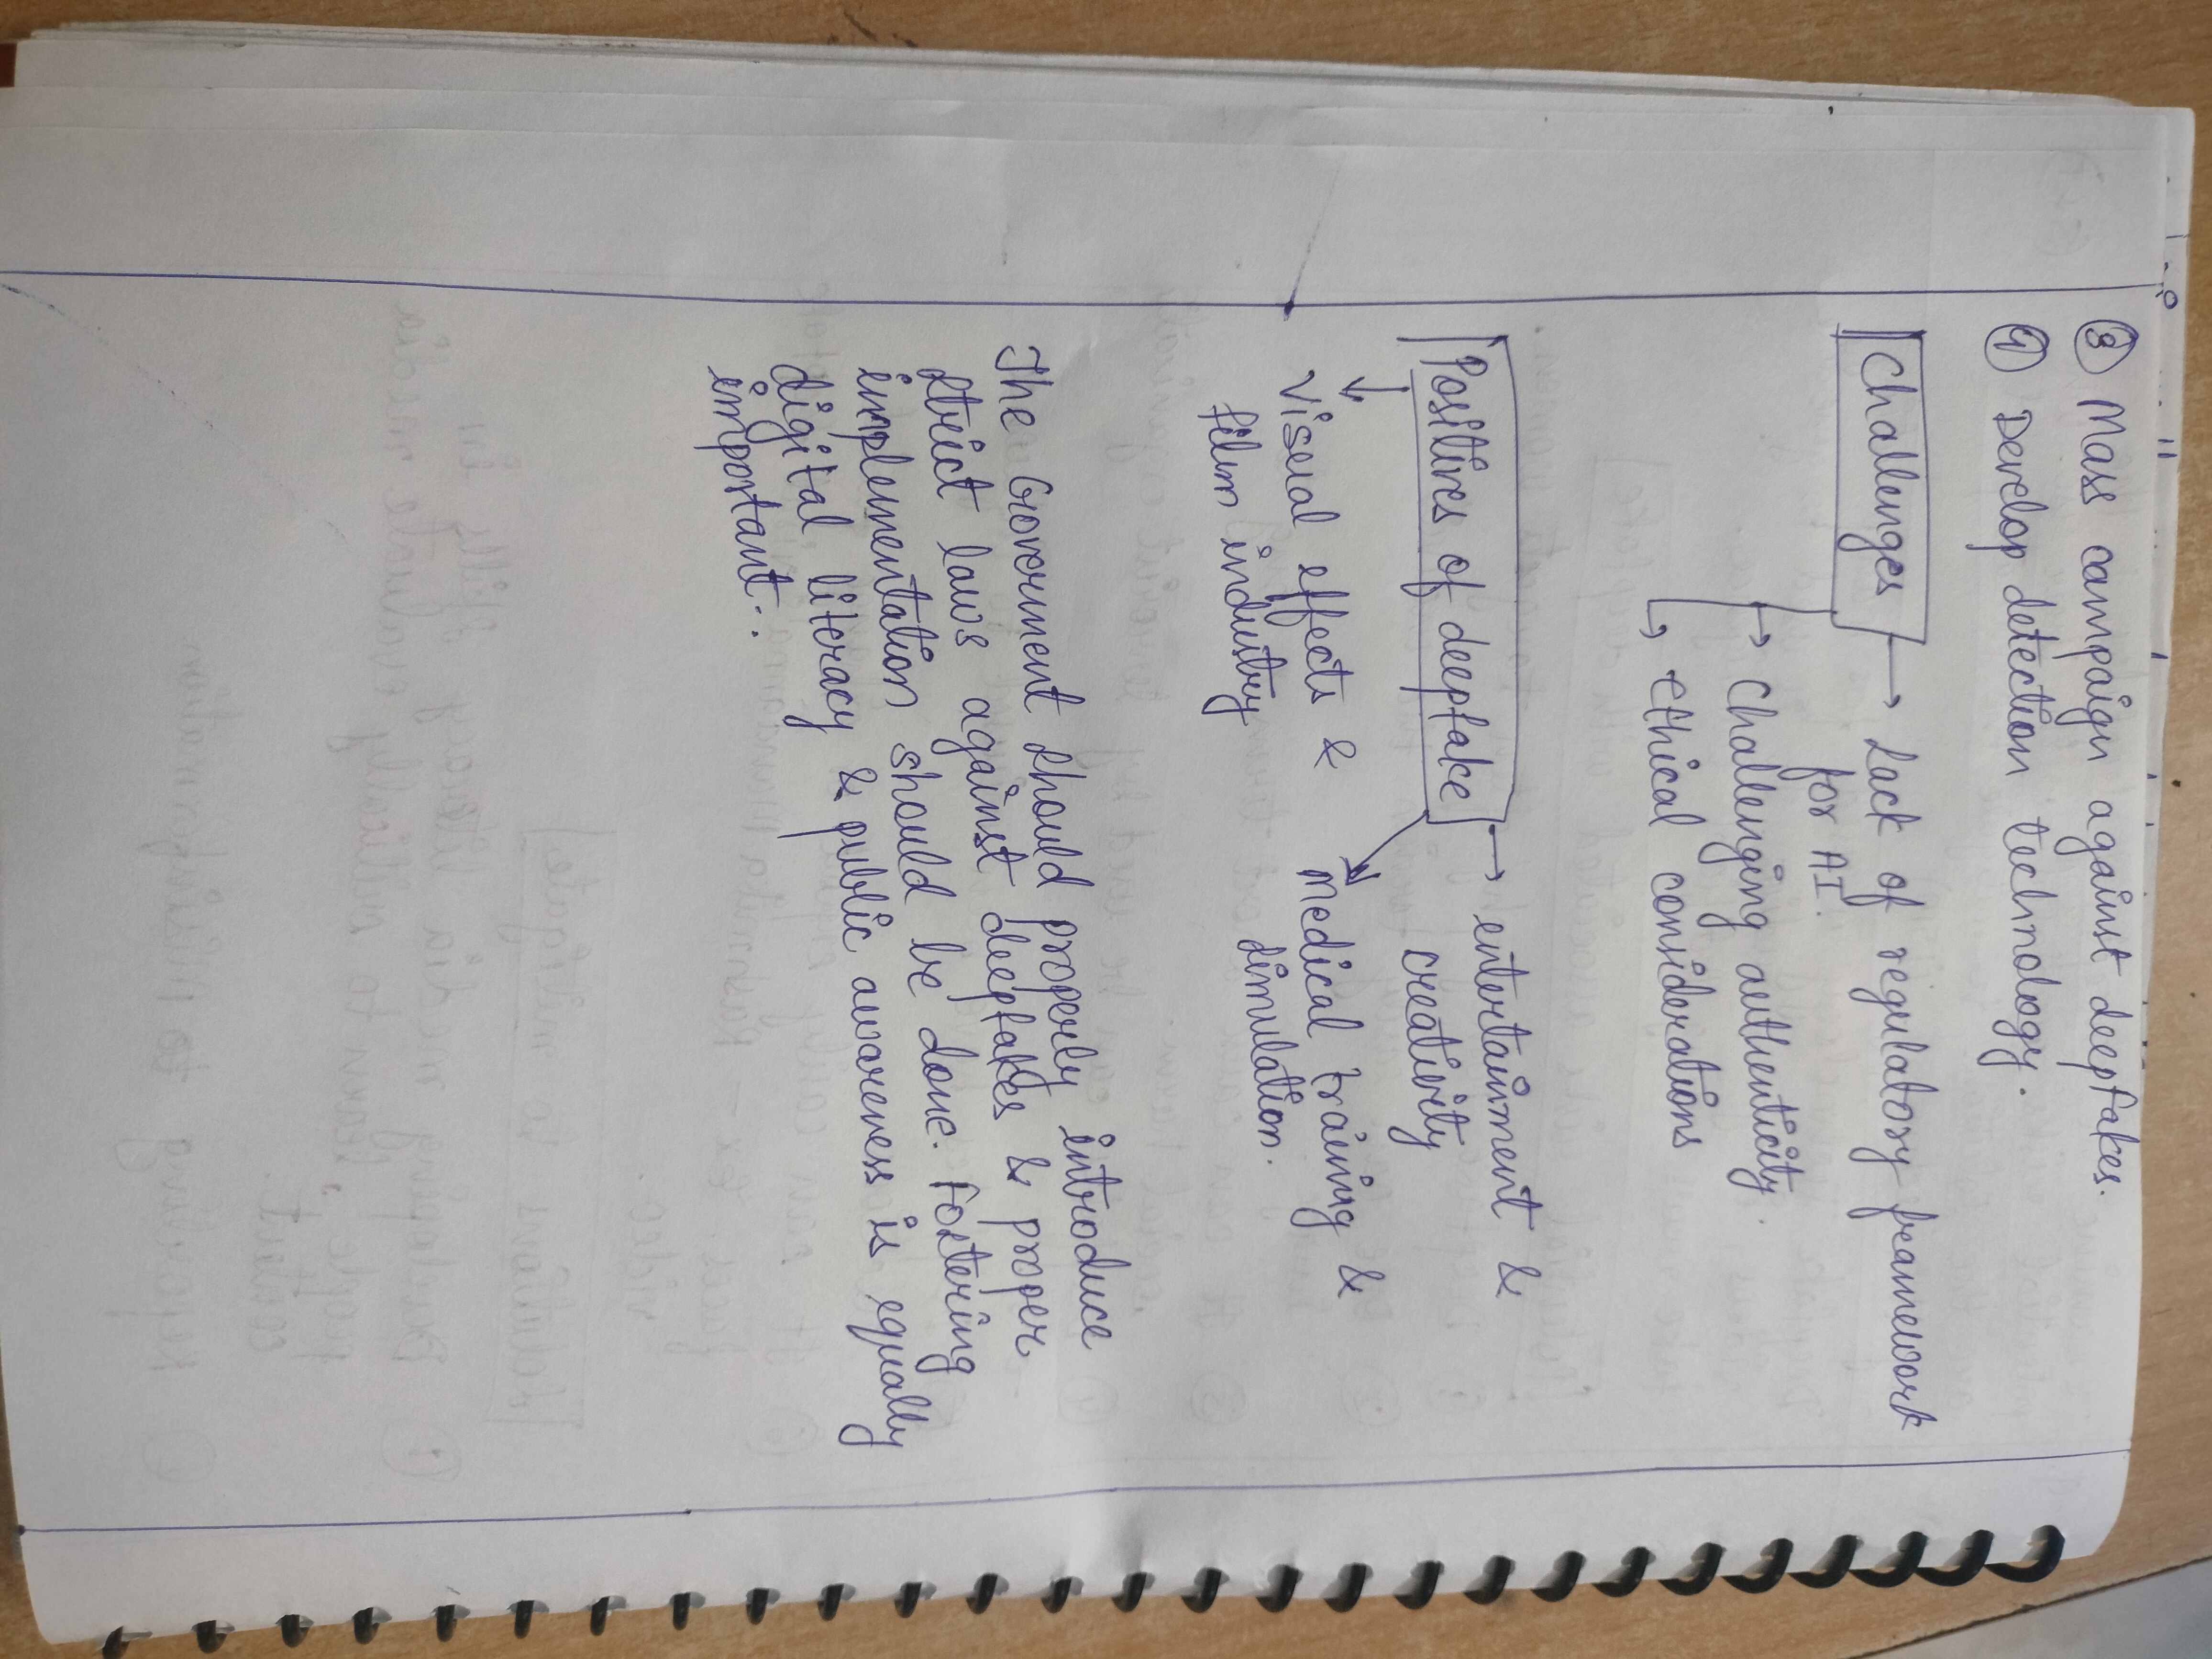 ③ Mass campaign against deepfakes.
④ Develop detection technology.
Challenges → Lack of regulatory framework
for AI.
→ Challenging authenticity.
→ Ethical considerations
Positives of deepfake → entertainment &
creativity
Visual effects &
film industry
Medical training &
simulation.
The Government should properly introduce
strict laws against deepfakes & proper
implementation should be done. Fostering
digital literacy & public awareness is equally
important.